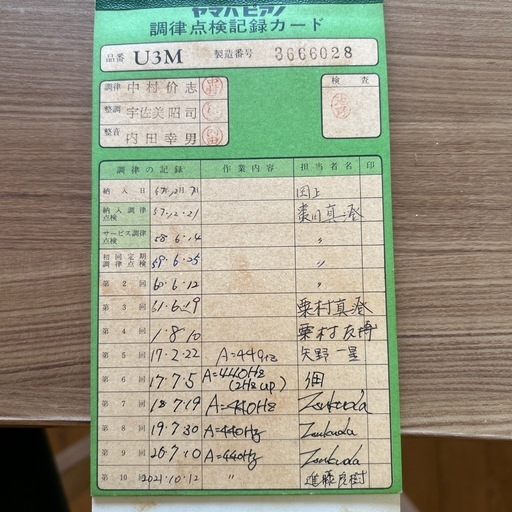 ヤマハピアノ
調律点検記録カード
品番 U3M 製造番号 3666028
調律 中村价志
整調 宇佐美昭司
整音 内田幸男
検査
調律の記録 作業内容 担当者名 印
納入日 57.12月7日
納入調律点検 57.12.21
サービス調律点検 58.6.14 〃
初回定期調律点検 59.6.25 〃
第2回 60.6.12 〃
第3回 61.6.19 粟村真澄
第4回 1.8.10 粟村友博
第5回 17.2.22 A=440Hz 矢野一星
第6回 17.7.5 A=440Hz (2Hz up) 佃
第7回 18.7.19 A=440Hz Tsukuda
第8回 19.7.30 A=440Hz Tsukuda
第9回 20.7.10 A=440Hz Tsukuda
第10回 2021.10.12 〃 進藤良樹